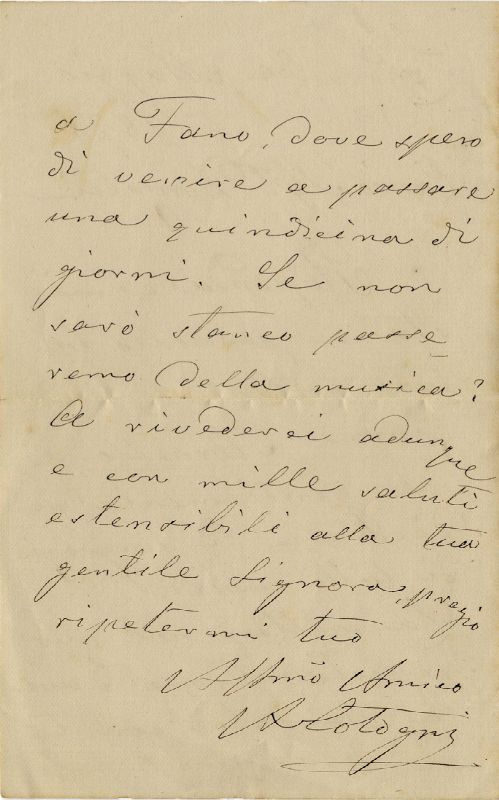 a Fano, dove spero
di venire a passare
una quindicina di
giorni. Se non
sarò stanco passe
remo della musica?
A rivederci adunque
e con mille saluti
estensibili alla tua
gentile Signora, pregio
ripetermi tuo
Affmo Amico
ACotogni